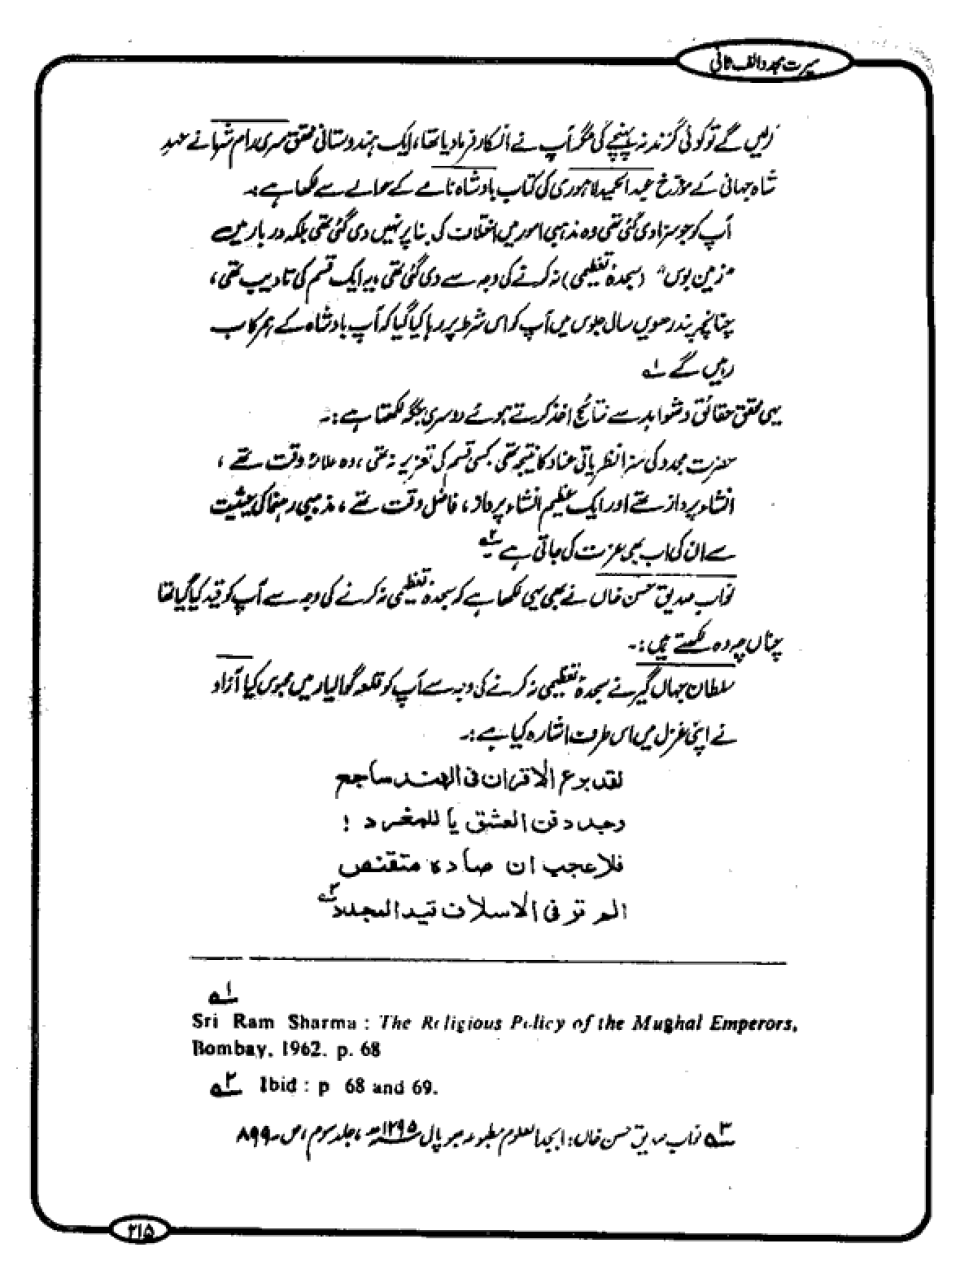 سیرت مجدد الف ثانی
لیں گے تو کوئی گزند نہ پہنچے گی مگر آپ نے انکار فرما دیا تھا، ایک ہندوستانی محقق سری رام شرما نے عہدِ
شاہ جہانی کے مؤرخ عبد الحمید لاہوری کی کتاب بادشاہ نامے کے حوالے سے لکھا ہے:۔
آپ کو جو سزا دی گئی تھی وہ مذہبی امور میں اختلاف کی بنا پر نہیں دی گئی تھی بلکہ دربار میں
"زمین بوس" (سجدۂ تعظیمی) نہ کرنے کی وجہ سے دی گئی تھی، یہ ایک قسم کی تادیب تھی،
چنانچہ پندرھویں سال جلوس میں آپ کو اس شرط پر رہا کیا گیا کہ آپ بادشاہ کے ہم رکاب
رہیں گے ۱؎
یہی محقق حقائق و شواہد سے نتائج اخذ کرتے ہوئے دوسری جگہ لکھتا ہے:۔
حضرت مجدد کی سزا نظریاتی عناد کا نتیجہ تھی کسی قسم کی تعزیر نہ تھی، وہ علامۂ وقت تھے،
انشاء پرداز تھے اور ایک عظیم انشاء پرداز، فاضل وقت تھے، مذہبی رہنما کی حیثیت
سے ان کی اب بھی عزت کی جاتی ہے ۲؎
نواب صدیق حسن خاں نے بھی یہی لکھا ہے کہ سجدۂ تعظیمی نہ کرنے کی وجہ سے آپ کو قید کیا گیا تھا
چناں چہ وہ لکھتے ہیں:۔
سلطان جہاں گیر نے سجدۂ تعظیمی نہ کرنے کی وجہ سے آپ کو قلعہ گوالیار میں محبوس کیا آزاد
نے اپنی غزل میں اس طرف اشارہ کیا ہے:۔
لقد برع الاقران فی الهند ساجع
وجدد فن العشق یا للمغرد !
فلا عجب ان صاده متقنص
الم تر فی الاسلاف قید المجدد ۳؎
۱؎
Sri Ram Sharma : The Religious Policy of the Mughal Emperors,
Bombay, 1962. p. 68
۲؎ Ibid : p 68 and 69.
۳؎ نواب صدیق حسن خاں: ابجد العلوم مطبوعہ بھوپال ۱۲۹۵ھ، جلد سوم، ص۔ ۸۹۹
۲۱۵